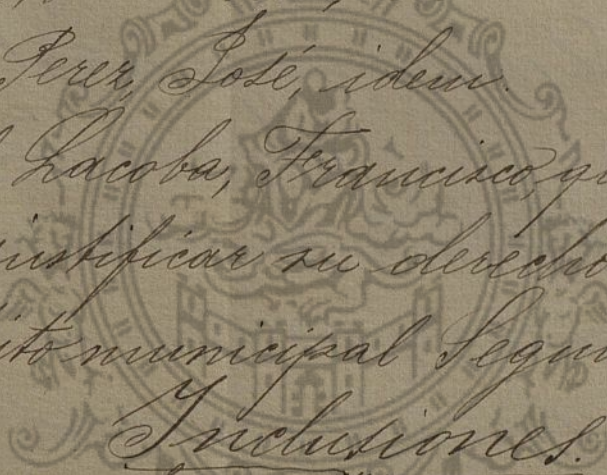 Perez, José, idem.
Lacoba, Francisco, qu
justificar su derecho
ito municipal Segun
Inclusiones.